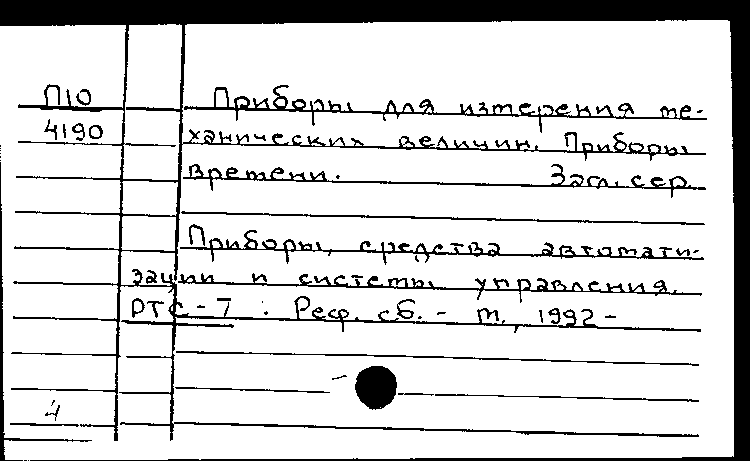 П10
4190
Приборы для измерения ме-
ханических величин. Приборы
времени. Загл. сер.
Приборы, средства автомати-
зации и системы управления.
РТС-7 : Реф. сб. - М., 1992-
4